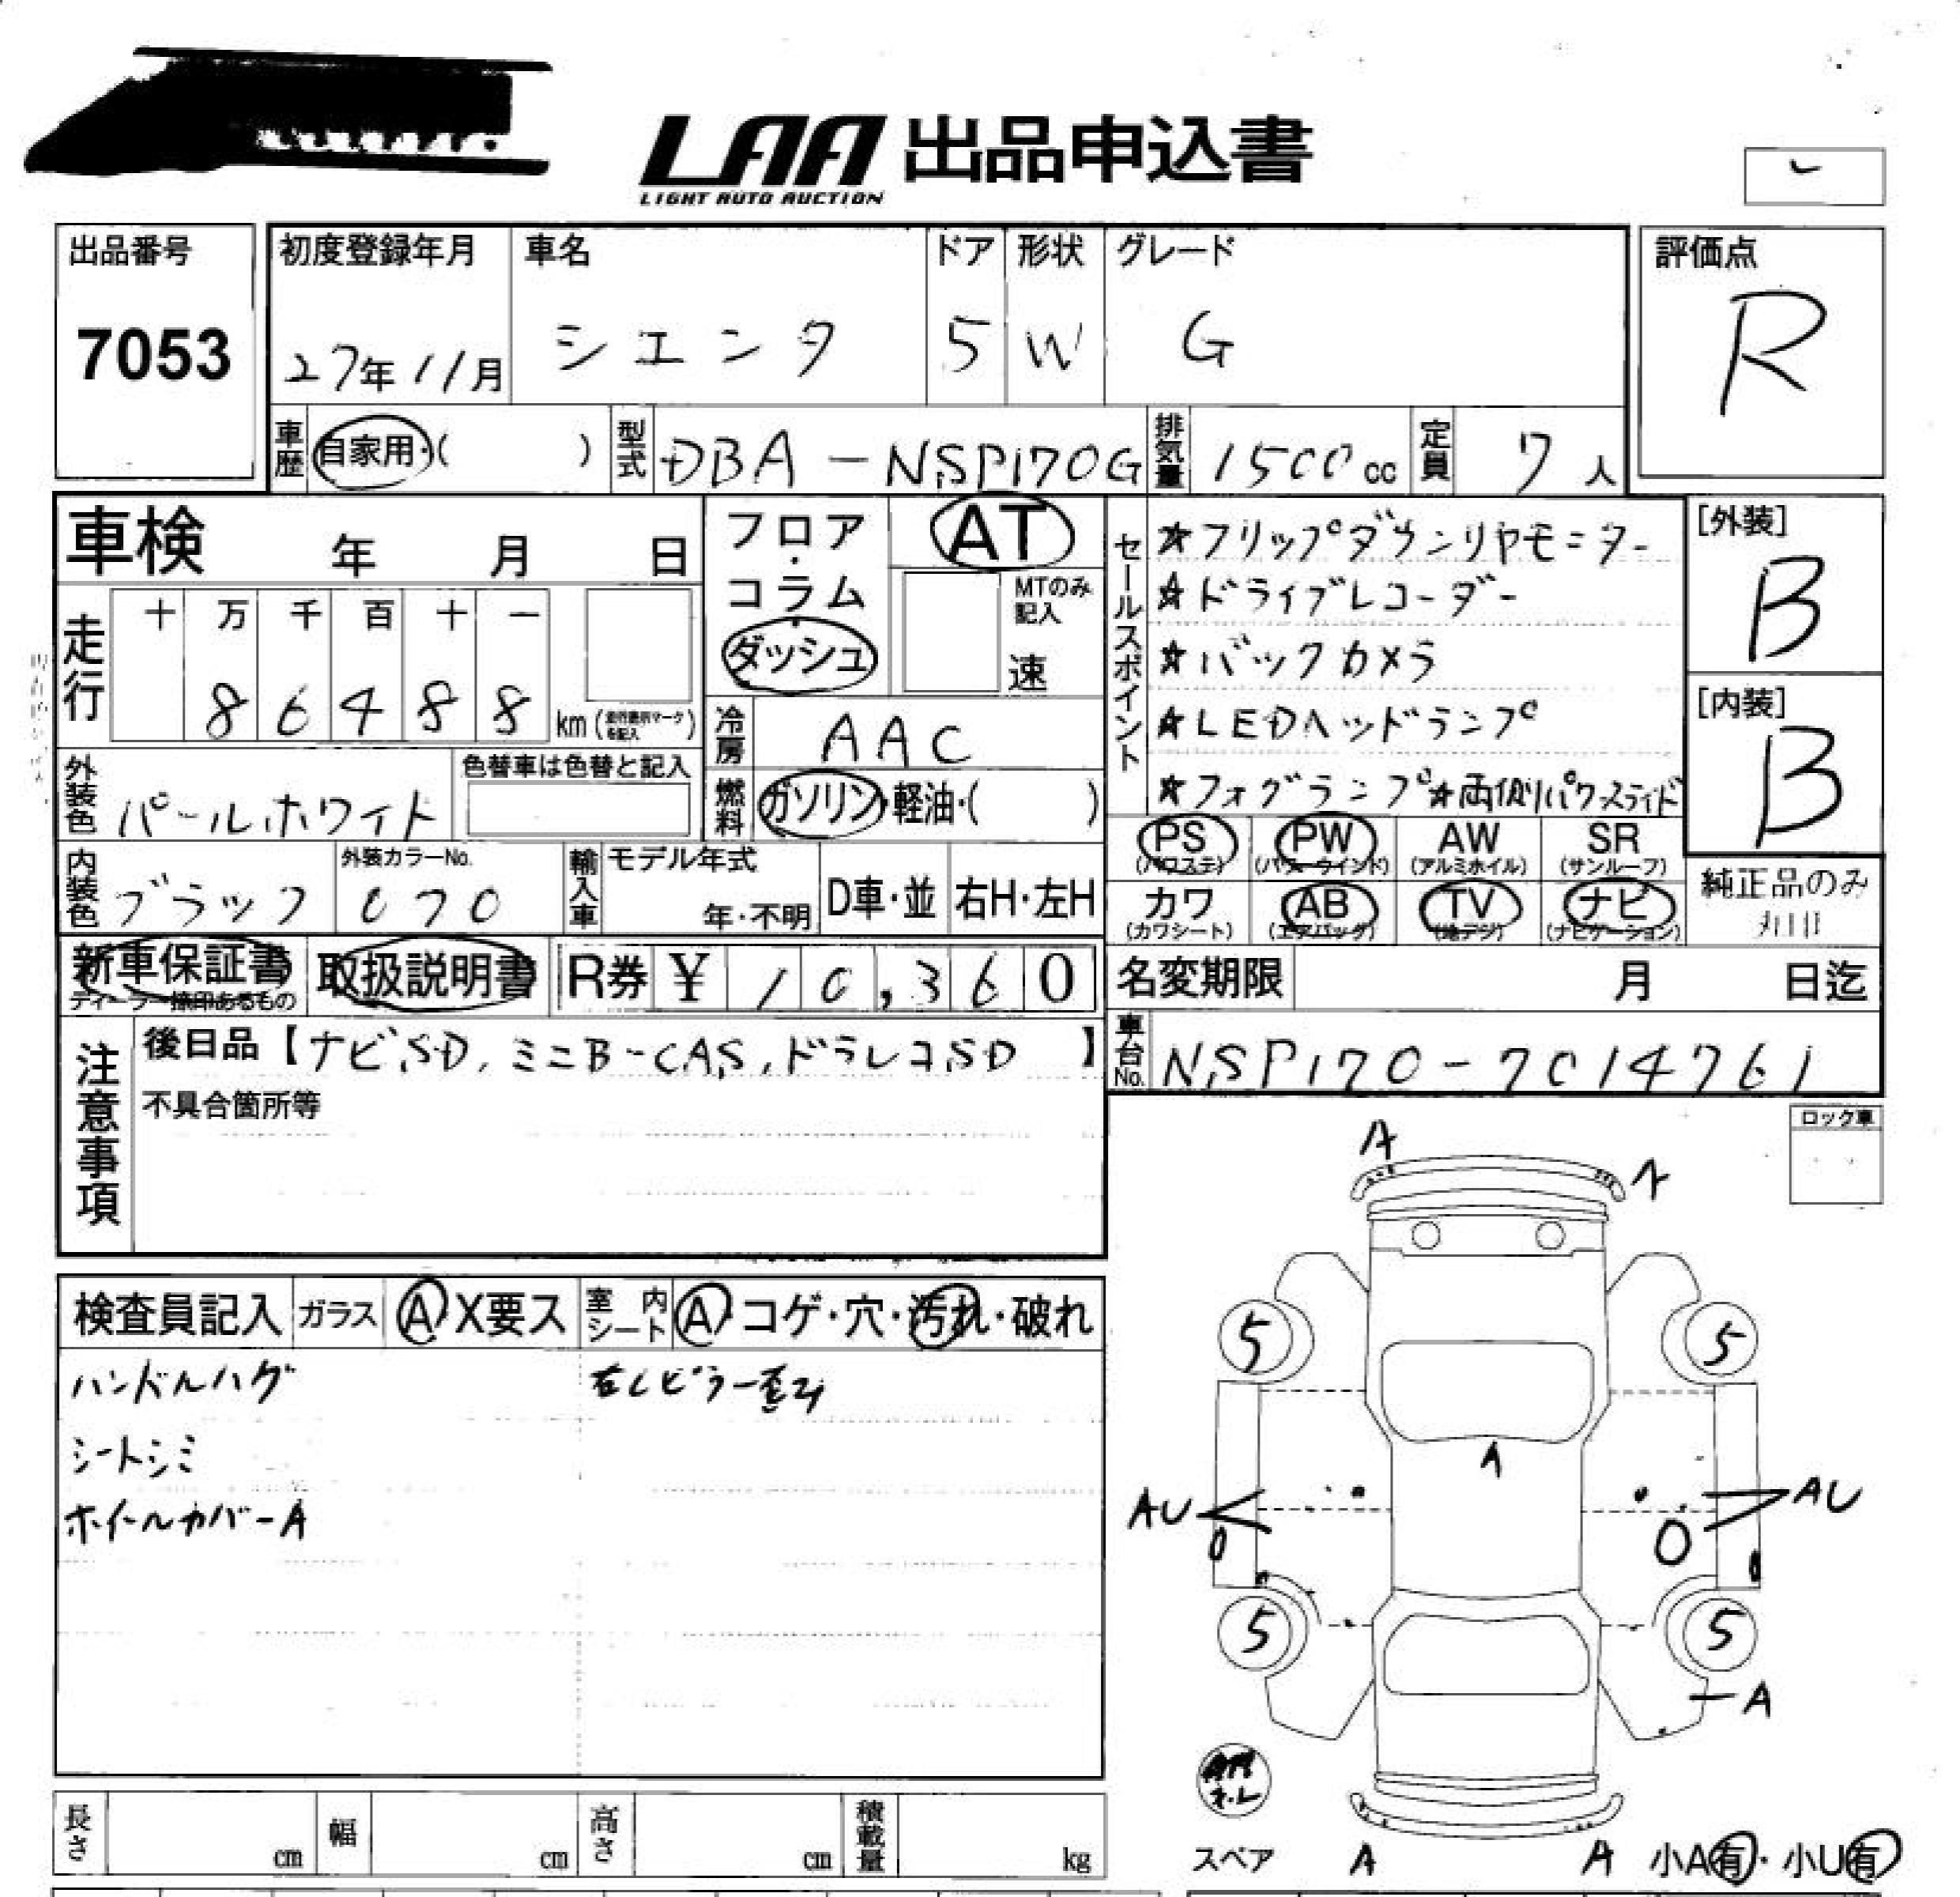 LAA 出品申込書
LIGHT AUTO AUCTION
出品番号
7053
初度登録年月
27年11月
車名
シエンタ
ドア
5
形状
W
グレード
G
評価点
R
車歴
自家用・( )
型式
DBA-NSP170G
排気量
1500cc
定員
7人
車検 年 月 日
フロア・コラム・ダッシュ
AT
MTのみ記入
速
セールスポイント
☆フリップダウンリヤモニター
☆ドライブレコーダー
☆バックカメラ
☆LEDヘッドランプ
☆フォグランプ☆両側パワースライド
[外装]
B
[内装]
B
走行
十 万 千 百 十 一
8 6 4 8 8 km (走行表示マークを記入)
冷房
AAC
外装色
パールホワイト
色替車は色替と記入
燃料
ガソリン・軽油・( )
PS
(パワステ)
PW
(パワーウインド)
AW
(アルミホイル)
SR
(サンルーフ)
カワ
(カワシート)
AB
(エアバッグ)
TV
(地デジ)
ナビ
(ナビゲーション)
純正品のみ
内装色
ブラック
外装カラーNo.
070
輸入車
モデル年式
年・不明
D車・並
右H・左H
新車保証書
ディーラー捺印あるもの
取扱説明書
R券 ¥ 10,360
名変期限 月 日迄
注意事項
後日品【ナビSD, ミニB-CAS, ドラレコSD】
不具合箇所等
車台No.
NSP170-7014761
ロック車
検査員記入
ガラス
A X要ス
室内シート
A コゲ・穴・汚れ・破れ
ハンドルハゲ
右Cピラー歪み
シートシミ
ホイールカバーA
A
A
5
5
A
AU
AU
5
5
A
スペア
A
A
小A有・小U有
長さ
cm
幅
cm
高さ
cm
積載量
kg